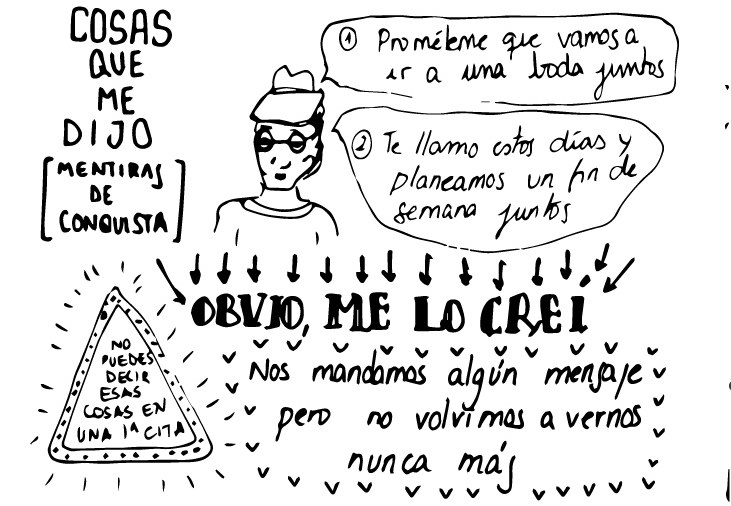 COSAS
QUE
ME
DIJO
[MENTIRAS
DE
CONQUISTA]
① Prométeme que vamos a
ir a una boda juntos
② Te llamo estos días y
planeamos un fin de
semana juntos
OBVIO, ME LO CREÍ
NO
PUEDES
DECIR
ESAS
COSAS EN
UNA 1ª CITA
Nos mandamos algún mensaje
pero no volvimos a vernos
nunca más